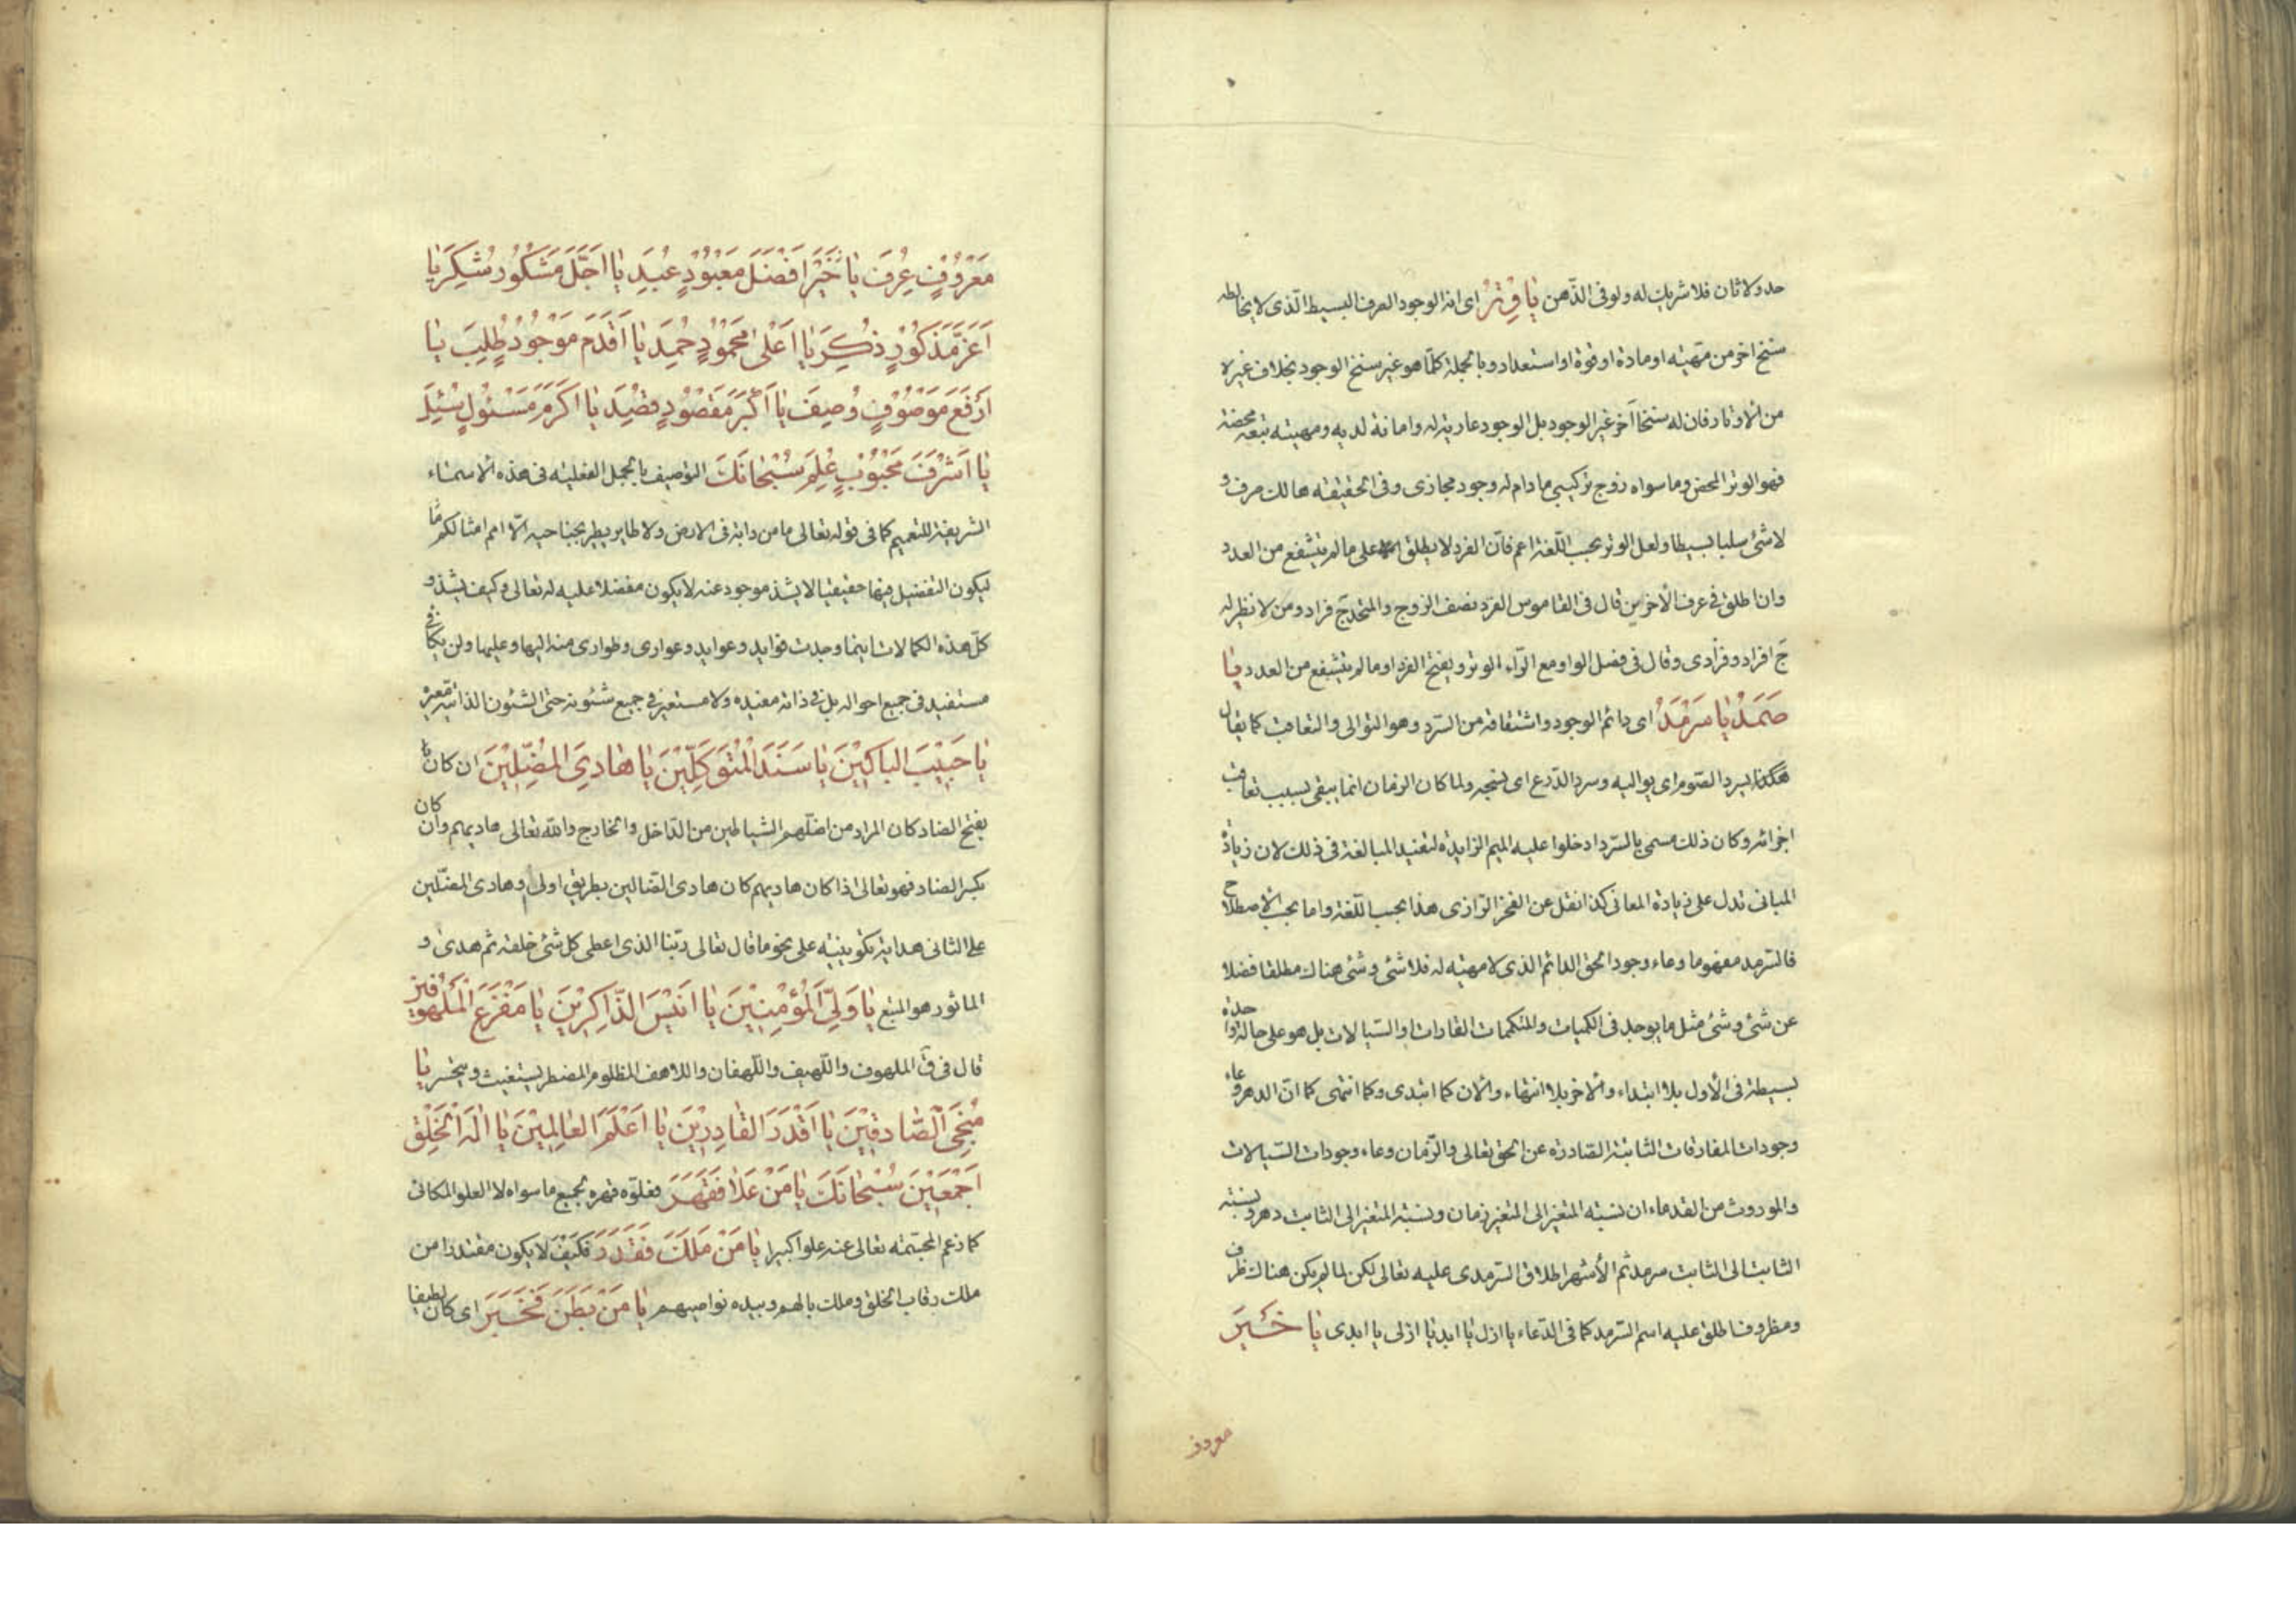 حد ولا ثان فلا شريك له ولو فى الذّهن يَا وِتْرُ اى انه الوجود الصرف البسيط الّذى لا يخالطه
سنخ اخر من مهيته او مادة او قوة او استعداد و بالجملة كلما هو غير سنخ الوجود بخلاف غيره
من الاوتار فان له سنخا آخر غير الوجود بل الوجود عارية له وامانة لديه ومهيته تبعه محضة
فهو الوتر المحض وما سواه زوج تركيبى مادام له وجود مجازى وفى الحقيقة هالك صرف و
لا شئ سلبا بسيطا ولعل الوتر بحسب اللّغة اعم فانّ الفرد لا يطلق على ما لم يتشفع من العدد
وان اطلق فى عرف الاخرين قال فى القاموس الفرد نصف الزوج والمتحد ج فراد ومن لا نظير له
ج افراد وفرادى وقال فى فصل الواو مع الرّاء الوتر ويفتح الفرد او ما لم يتشفع من العدد يَا
صَمَدُ يَا سَرْمَدُ اى دائم الوجود واشتقاقه من السّرد وهو التوالى والتعاقب كما يقال
هكذا يسرد الصّوم اى يواليه وسرد الدّرع اى ينسجه ولما كان الزمان انما يبقى بسبب تعاقب
اجزائه وكان ذلك مسمى بالسّرد ادخلوا عليه الميم الزايدة لتفيد المبالغة فى ذلك لان زيادة
المبانى تدل على زيادة المعانى كذا نقل عن الفخر الرّازى هذا بحسب اللّغة واما بحسب الاصطلاح
فالسّرمد مفهوما وعاء وجود الحق الدائم الذى لا مهية له فلا شئ وشئ هناك مطلقا فضلا
عن شئ وشئ مثل ما يوجد فى الكميات والمتكممات القارات او السّيالات بل هو على حالة واحدة
بسيطة فى الأول بلا ابتداء والآخر بلا انتهاء والان كما ابتدى وكما انتهى كما انّ الدهر وعاء
وجودات المفارقات الثابتة الصّادرة عن الحق تعالى والزّمان وعاء وجودات السّيالات
والموروث من القدماء ان نسبة المتغير الى المتغير زمان ونسبة المتغير الى الثابت دهر ونسبة
الثابت الى الثابت سرمد ثم الأشهر اطلاق السّرمدى عليه تعالى لكن لما لم يكن هناك ظرف
ومظروف اطلق عليه اسم السّرمد كما فى الدّعاء يا ازل يا ابد يا ازلى يا ابدى يَا خَيْرَ
معروف
مَعْرُوفٍ عُرِفَ يَا خَيْرَ اَفْضَلَ مَعْبُودٍ عُبِدَ يَا اَجَلَّ مَشْكُورٍ شُكِرَ يَا
اَعَزَّ مَذْكُورٍ ذُكِرَ يَا اَعْلىٰ مَحْمُودٍ حُمِدَ يَا اَقْدَمَ مَوْجُودٍ طُلِبَ يَا
اَرْفَعَ مَوْصُوفٍ وُصِفَ يَا اَكْبَرَ مَقْصُودٍ قُصِدَ يَا اَكْرَمَ مَسْئُولٍ سُئِلَ
يَا اَشْرَفَ مَحْبُوبٍ عُلِمَ سُبْحَانَكَ التوصيف بالجمل الفعلية فى هذه الاسماء
الشريفة للتعميم كما فى قوله تعالى ما من دابة فى الارض ولا طاير يطير بجناحيه الّا امم امثالكم
ليكون التفضيل فيها حقيقيا لا يشذ موجود عنه لا يكون مفضلا عليه له تعالى وكيف يشذ و
كلّ هذه الكمالات اينما وجدت فوايد وعوايد وعوارى وطوارى منه اليها وعليها ولن يكافئ
مستفيد فى جميع احواله بل فى ذاته مفيده ولا مستعير فى جميع شئونه حتى الشئون الذاتية معيره
يَا حَبِيبَ البَاكِينَ يَا سَنَدَ المُتَوَكِّلِينَ يَا هَادِىَ المُضِلِّينَ ان كان
بفتح الضاد كان المراد من اضلّهم الشياطين من الدّاخل والخارج والله تعالى هاديهم وان كان
بكسر الضاد فهو تعالى اذا كان هاديهم كان هادى الضالين بطريق اولى او هادى المضلّين
على الثانى هداية تكوينية على نحو ما قال تعالى ربّنا الذى اعطى كل شئ خلقه ثم هدى و
الماثور هو المتبع يَا وَلِىَّ المُؤْمِنِينَ يَا اَنِيسَ الذّاكِرِينَ يَا مَفْزَعَ المَلْهُوفِينَ
قال فى ق الملهوف واللّهيف واللّهفان واللاهف المظلوم المضطر يستغيث ويتحسر يَا
مُنْجِىَ الصَّادِقِينَ يَا اَقْدَرَ القَادِرِينَ يَا اَعْلَمَ العَالِمِينَ يَا اِلٰهَ الخَلْقِ
اَجْمَعِينَ سُبْحَانَكَ يَا مَنْ عَلَا فَقَهَرَ فعلوّه قهره لجميع ما سواه لا العلو المكانى
كما زعم المجسّمة تعالى عنه علوا كبيرا يَا مَنْ مَلَكَ فَقَدَرَ فكيف لا يكون مقتدرا من
ملك رقاب الخلق وملك بالهم وبيده نواصيهم يَا مَنْ بَطَنَ فَخَبَرَ اى كان لطيفا